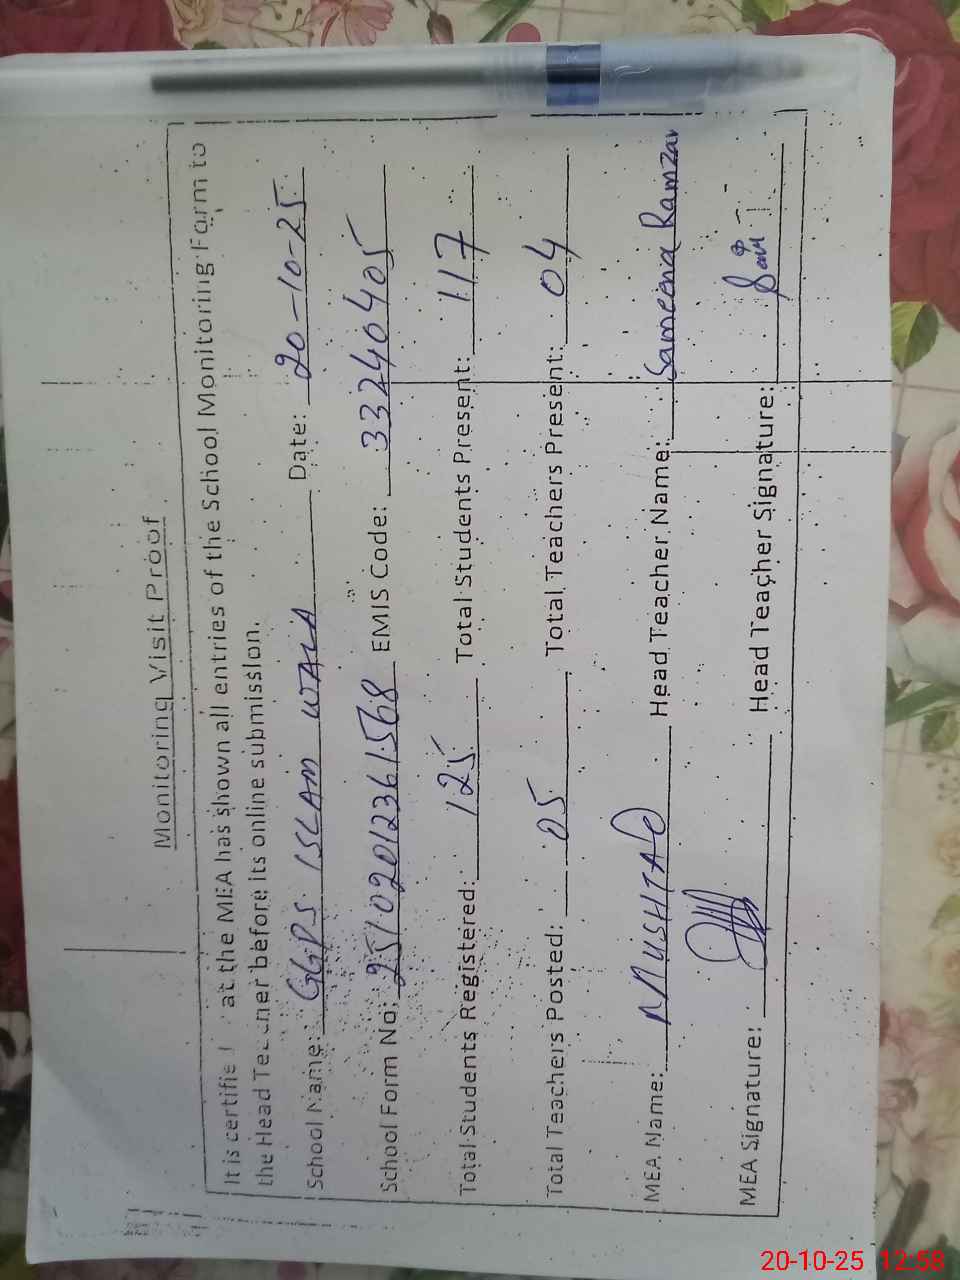 Monitoring Visit Proof
It is certifie at the MEA has shown all entries of the School Monitoring Form to
the Head Te ner before its online submission.
School Name: GGPS ISLAM WALA Date: 20-10-25
School Form No: 25102012361568 EMIS Code: 33240405
Total Students Registered: 125 Total Students Present: 117
Total Teachers Posted: 05 Total Teachers Present: 04
MEA Name: MUSHTAQ Head Teacher Name: Sameena Ramzan
MEA Signature: Head Teacher Signature:
20-10-25 12:58